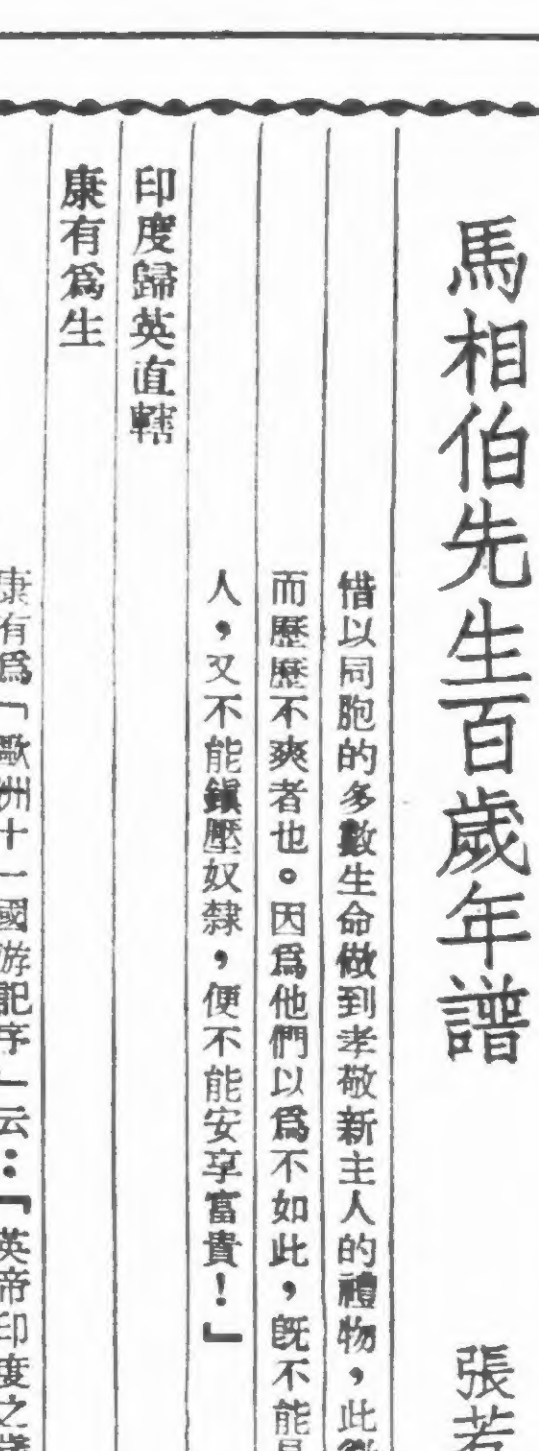 馬相伯先生百歲年譜
張若
惜以同胞的多數生命做到孝敬新主人的禮物，此
而歷歷不爽者也。因爲他們以爲不如此，既不能
人，又不能鎭壓奴隸，便不能安享富貴！」
印度歸英直轄
康有爲生
康有爲「歐洲十一國游記序」云：「英帝印度之歲